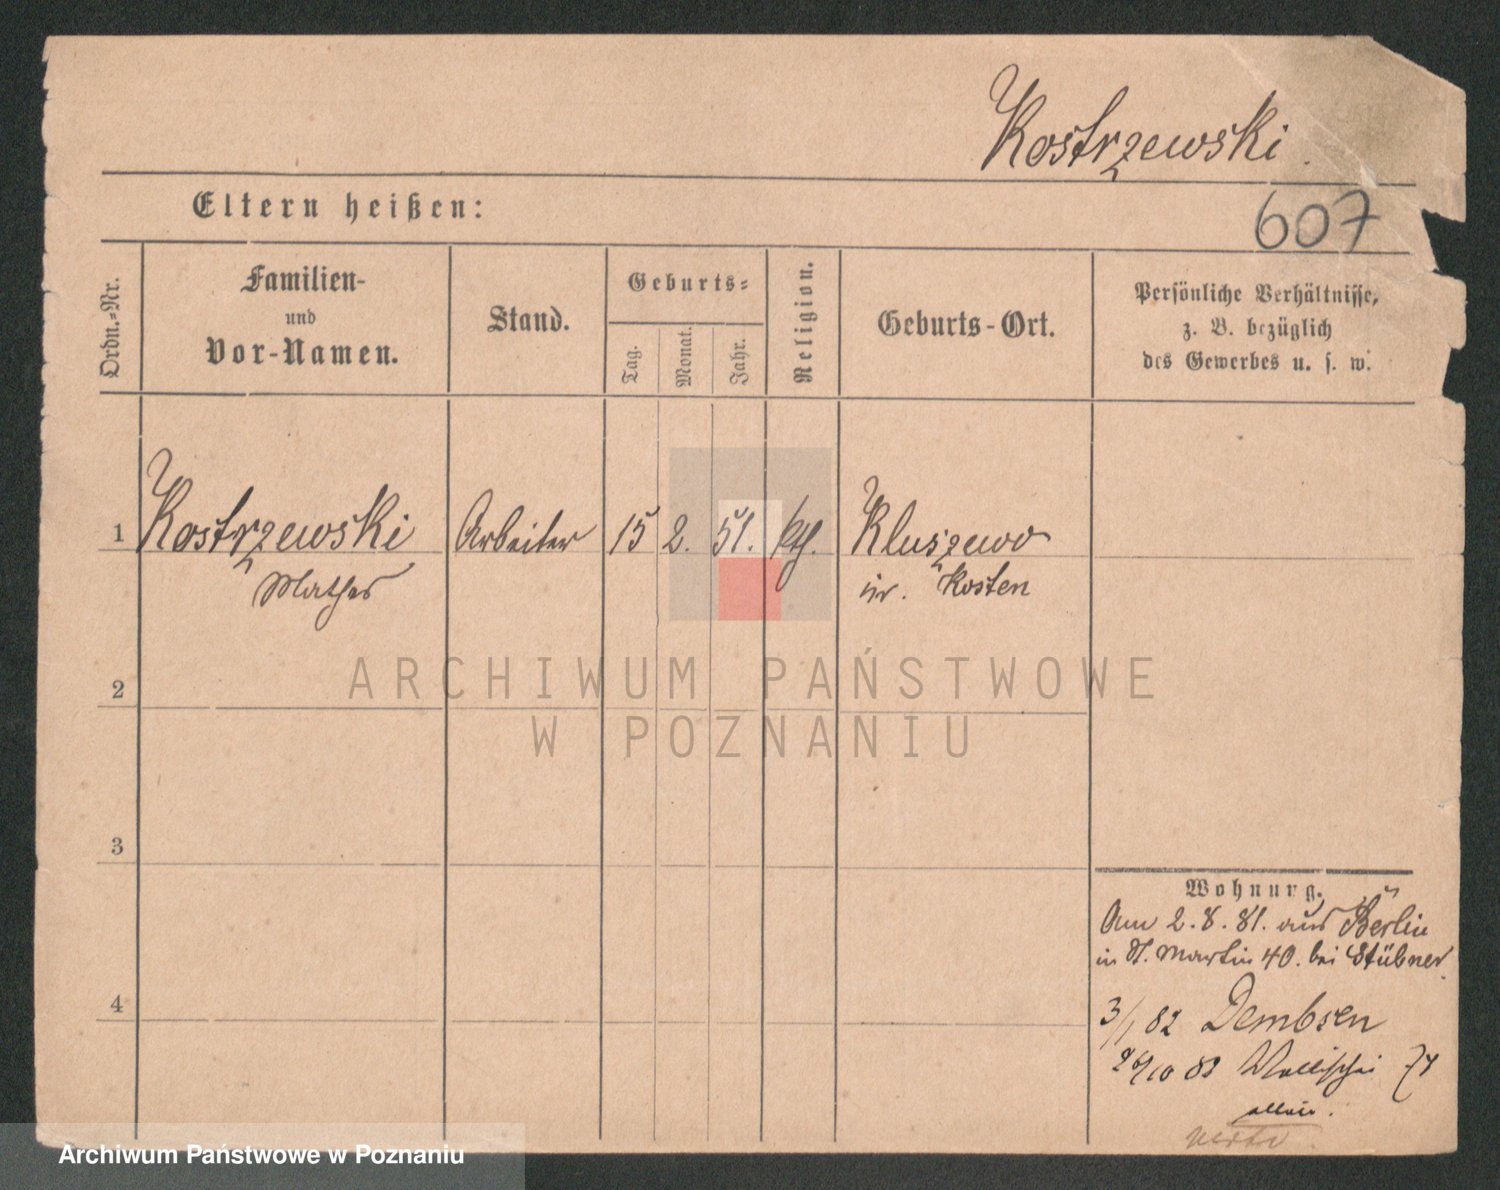 Kostrzewski.
607
Eltern heißen:
Ordn.-Nr.
Familien-
und
Vor-Namen.
Stand.
Geburts-
Tag.
Monat.
Jahr.
Religion.
Geburts-Ort.
Persönliche Verhältnisse,
z. B. bezüglich
des Gewerbes u. s. w.
1 Kostrzewski Arbeiter 15 2. 51. kth. Kluszewo
Kosten
2
3
4
Wohnung.
Am 2.8.81. aus Berlin
in St. Martin 40. bei Stübner.
3/1 82 Dembsen
Wallischei
allein.
ARCHIWUM PAŃSTWOWE
W POZNANIU
Archiwum Państwowe w Poznaniu